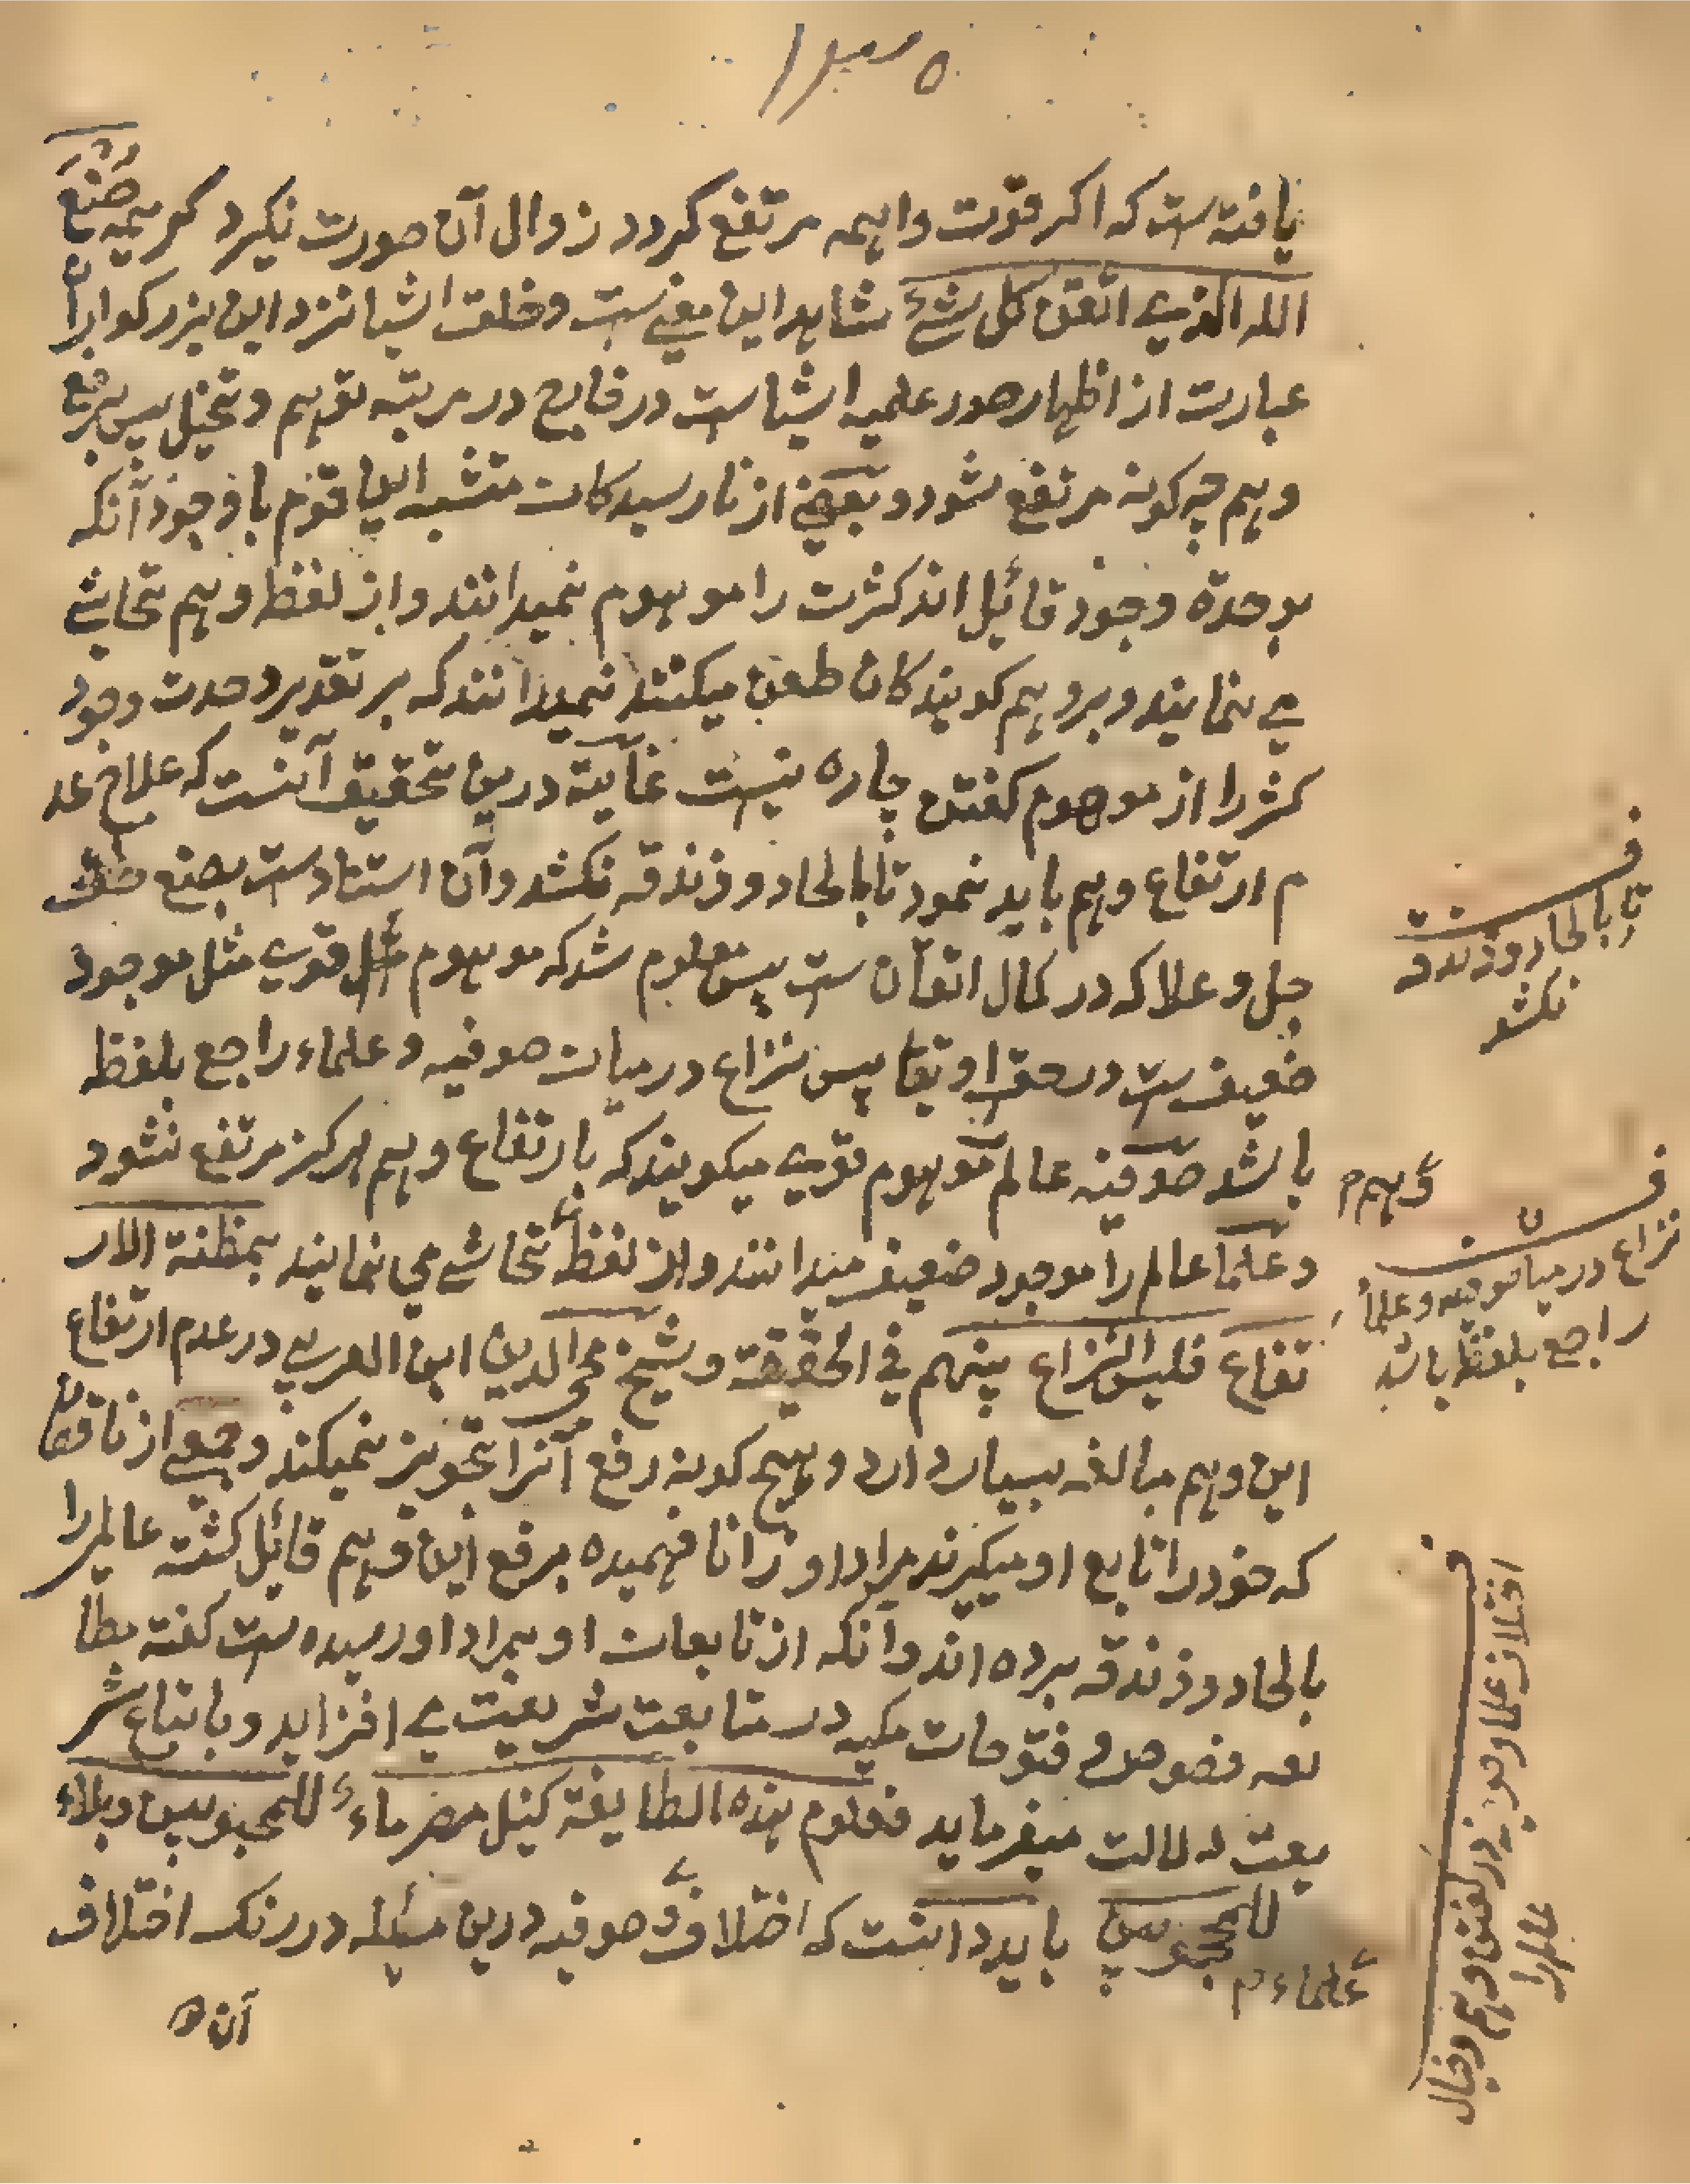 یافته ست که اکر قوّت واهمه مرتفع کردد زوال آن صورت نکیرد کریمه صنع
الله الذی اتقن کل شئ شاهد این معنی ست و خلقت اشیا نزد این بزرکواران
عبارت از اظهار صور علمیه اشیاست در خارج در مرتبه توهم و تخیل پس برفع
وهم چه کونه مرتفع شود و بعضی از نارسیدکان متشبه این قوم با وجود آنکه
بوحدة وجود قائل اند کثرت را موهوم نمیدانند و از لفظ وهم تحاشی
می نمایند و بر وهم کویندکان طعن میکنند نمیدانند که بر تقدیر وحدت وجود
کثر را از موهوم کفتن چاره نیست غایة درین تحقیق آنست که علاج عد
م ارتفاع وهم باید نمود تا بالحاد و زندقه نکشد وآن استناد ست بصنع حق
جل و علا که در کمال اتقان ست پس معلوم شد که موهوم قوی مثل موجود
ضعیف ست در حق او تعا پس نزاع در میان صوفیه و علماء راجع بلفظ
باشد صوفیه عالم موهوم قوی میکویند که بارتفاع وهم هرکز مرتفع نشود
وهم م
و علما عالم را موجود ضعیف میدانند و از لفظ تحاشی می نمایند بمظنة الار
تفاع فلیس النزاع بینهم فی الحقیقة و شیخ محی الدین ابن العربی در عدم ارتفاع
این وهم مبالغه بسیار دارد و هیچ کونه رفع آنرا تجویز نمیکند و جمعی از ناقصان
که خود را تابع او میکیرند مراد او را نا فهمیده برفع این وهم قائل کشته عالم را
بالحاد و زندقه برده اند و آنکه از تابعان او بمراد او رسیده ست کفته مطا
لعه فصوص و فتوحات مکیه در متابعت شریعت می افزاید و باتباع شر
یعت دلالت میفرماید فعلوم هذه الطایفة کنیل مصر ماء للمحبوبین و بلاء
للمحجوبین باید دانست که اختلاف صوفیه درین مسئله در رنک اختلاف
علماء م
آن
ف
تا بالحاد و زندقه
نکشد
ف
نزاع در میان صوفیه و علماء
راجع بلفظ باشد
ف
اختلاف علما و صوفیه در کفتن وهم و خیال
عالم را